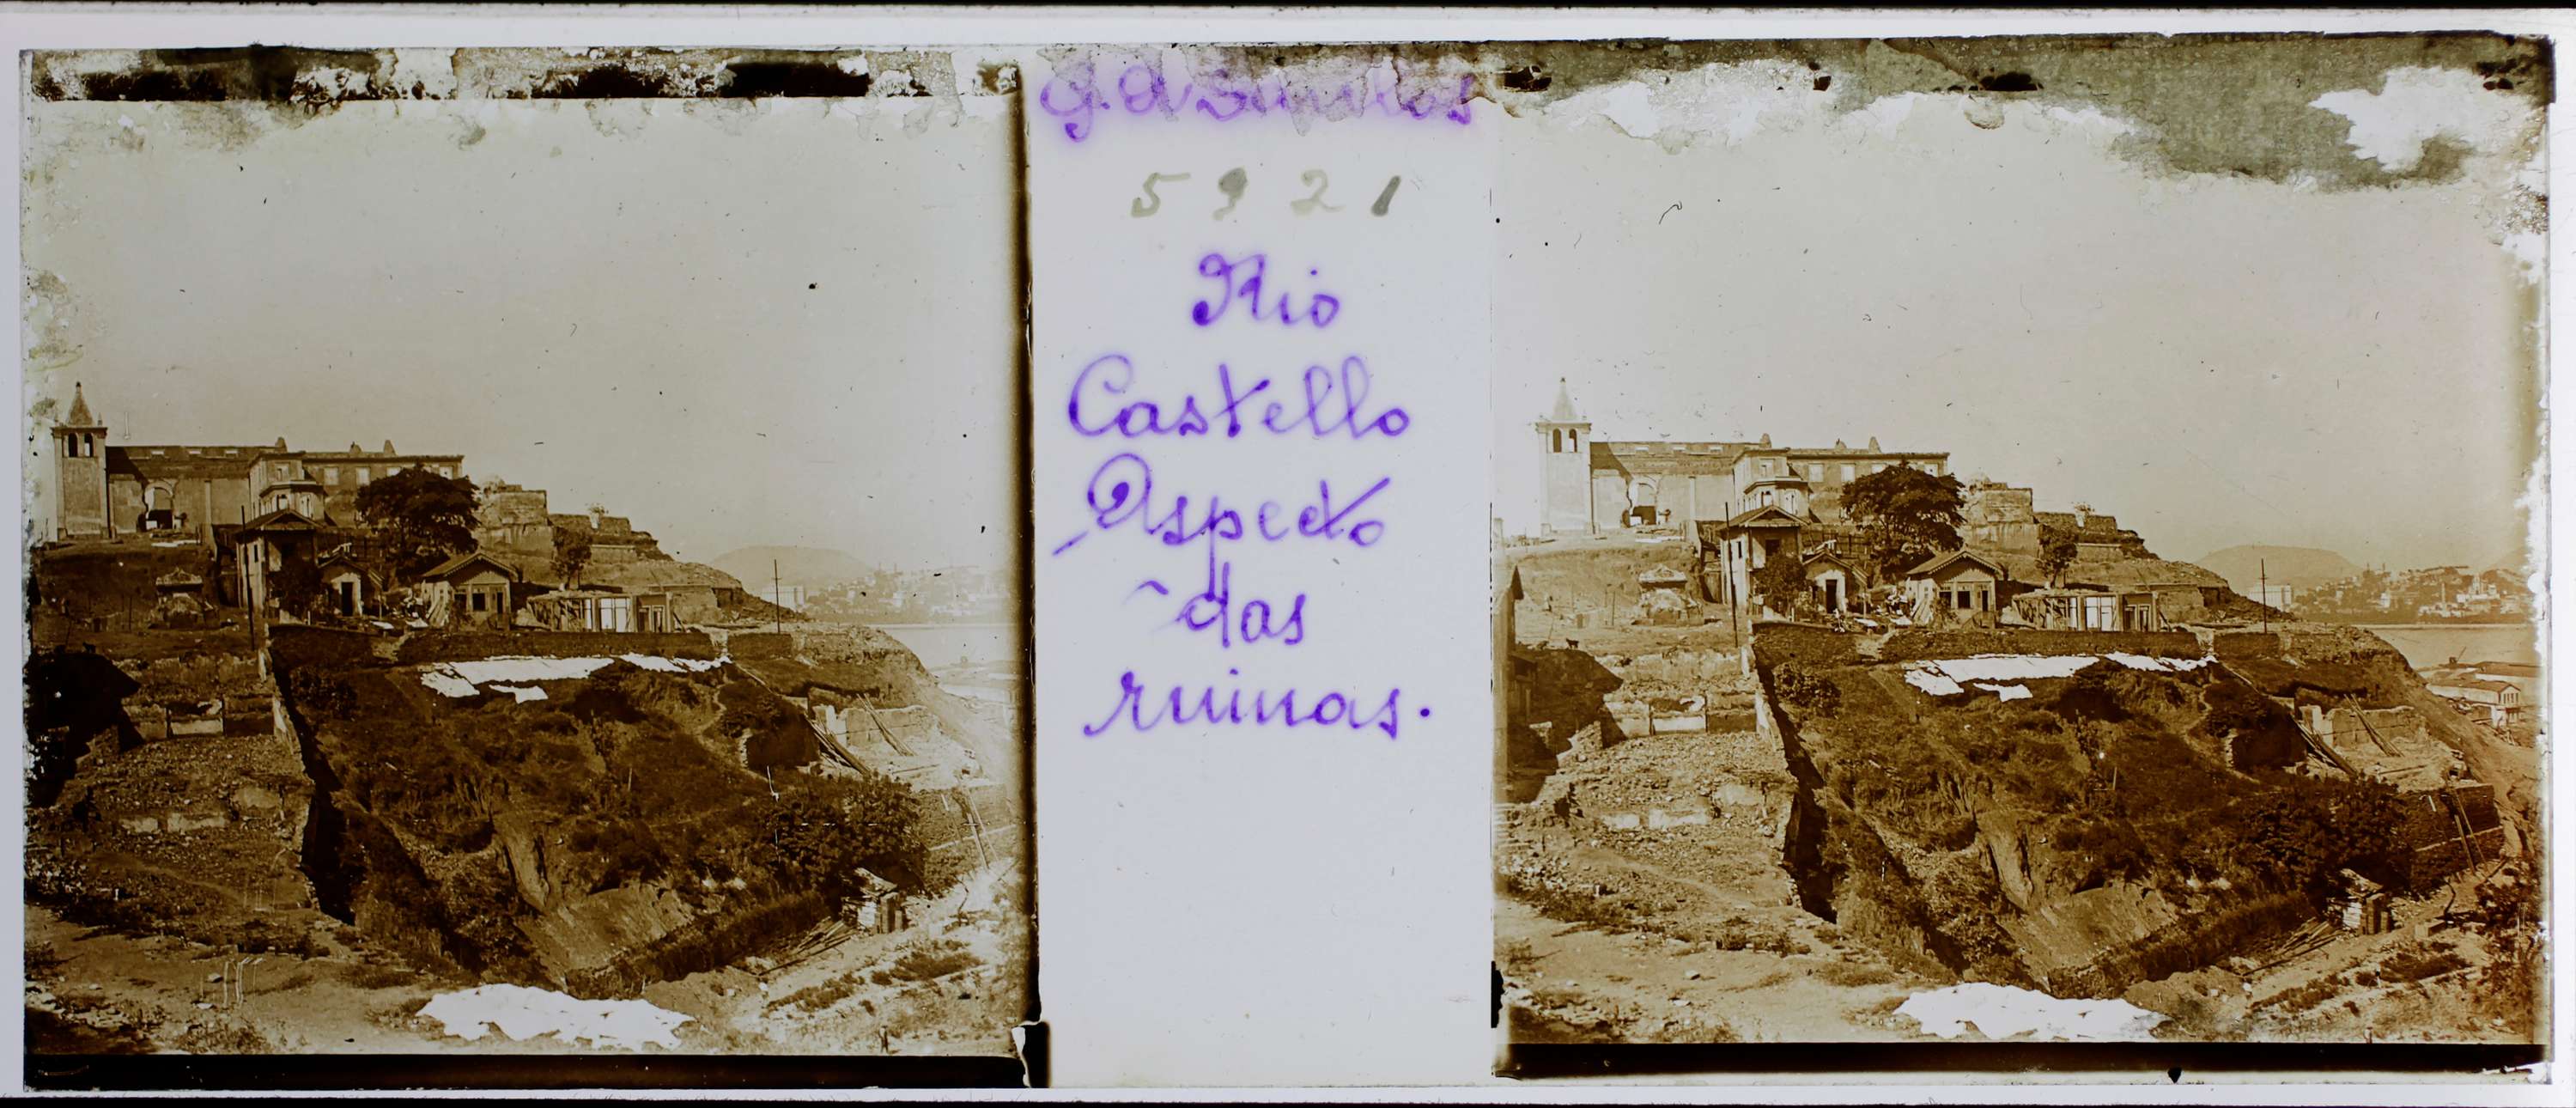 G. A. Santos
5921
Rio
Castello
Aspecto
das
ruinas.